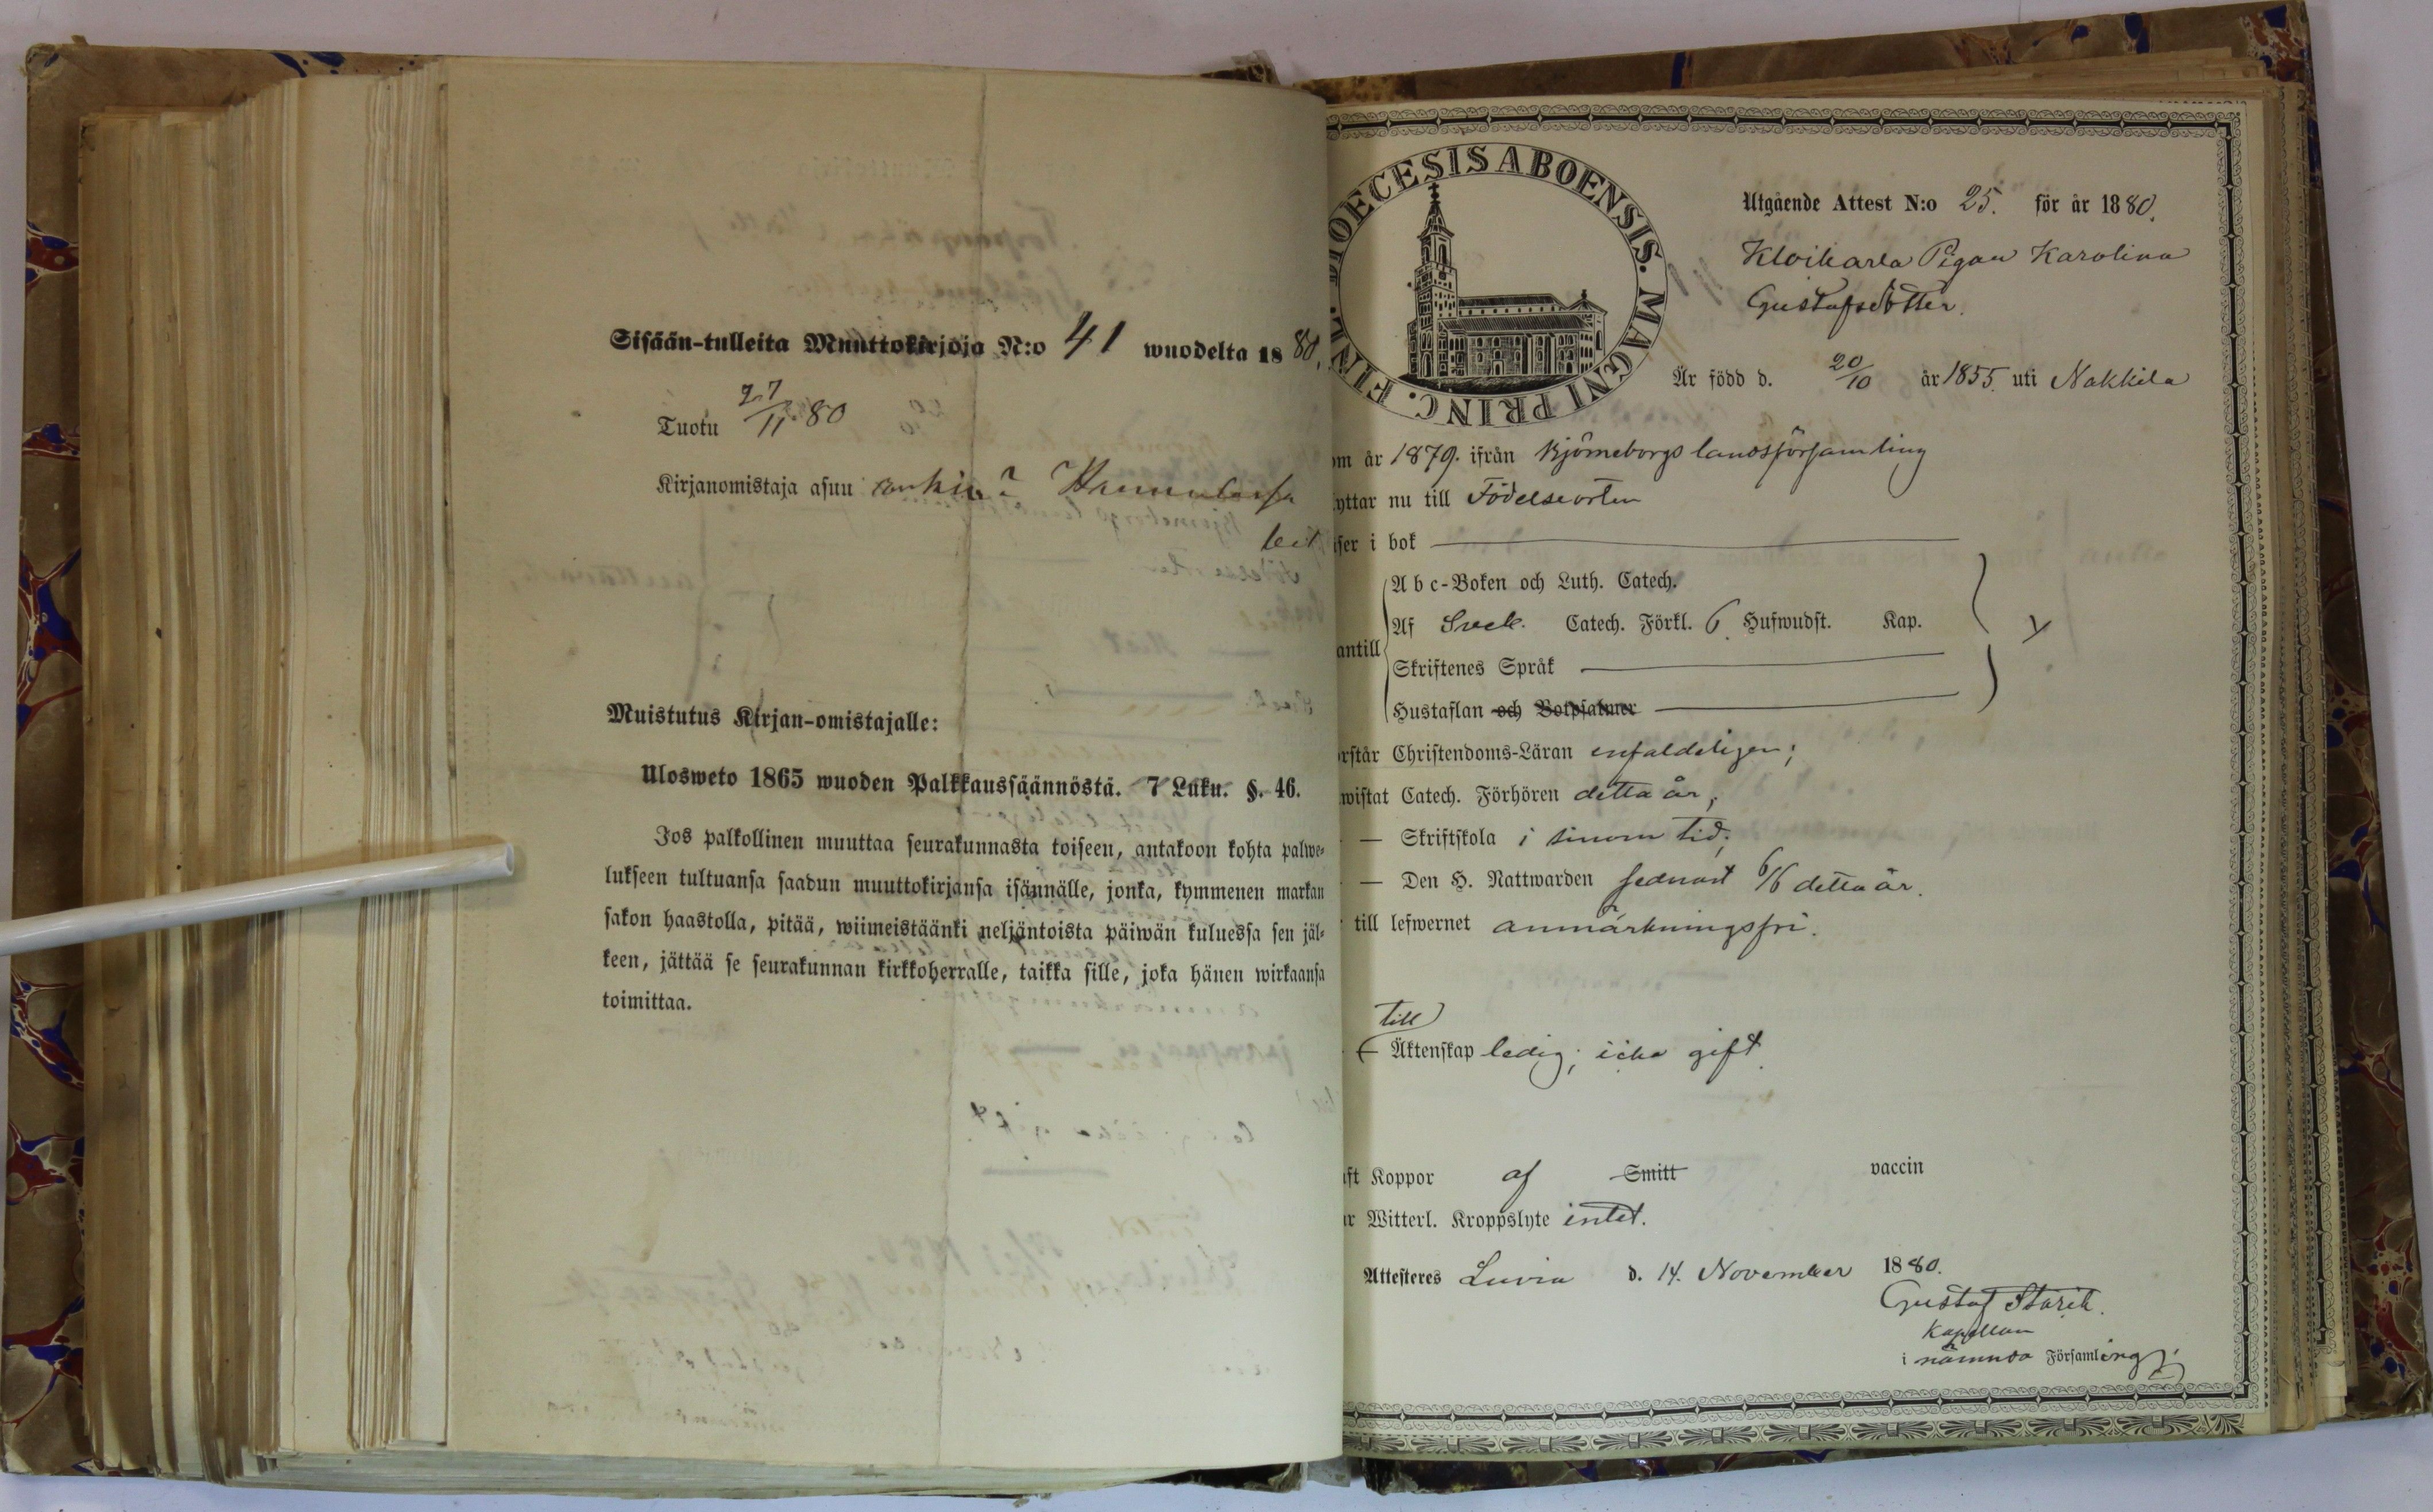 Sisään-tulleita Muuttokirjoja N:o 41 wuodelta 1880.
Tuotu 27/11 80
Kirjanomistaja asuu
Muistutus Kirjan-omistajalle:
Ulosweto 1865 wuoden Palkkaussäännöstä. 7 Luku. §. 46.
Jos palkollinen muuttaa seurakunnasta toiseen, antakoon kohta palwe-
lukseen tultuansa saadun muuttokirjansa isännälle, jonka, kymmenen markan
sakon haastolla, pitää, wiimeistäänki neljäntoista päiwän kuluessa sen jäl-
keen, jättää se seurakunnan kirkkoherralle, taikka sille, joka hänen wirkaansa
toimittaa.
DIOECESIS ABOENSIS. MAGNI PRINC. FINL.
Utgående Attest N:o 25. för år 1880.
Pigan Karolina
Gustafsdotter.
Är född d. 20/10 år 1855. uti Nakkila
om år 1879. ifrån Björneborgs landsförsamling
yttar nu till Födelseorten
äser i bok
antill
Abc-Boken och Luth. Catech.
Af Sveb. Catech. Förkl. 6 Hufwudst. Kap.
Skriftenes Språk
Hustaflan och Botpsalmer
örstår Christendoms-Läran enfaldeligen;
wistat Catech. Förhören detta år,
— Skriftskola i sinom tid;
— Den H. Nattwarden sednast 6/6 detta år.
till lefwernet anmärkningsfri.
till
— Äktenskap ledig; icke gift.
aft Koppor af Smitt vaccin
ar Witterl. Kroppslyte intet.
Attesteres Luvia d. 14. November 1880.
Gustaf
Kapellan
i nämnda Församling.